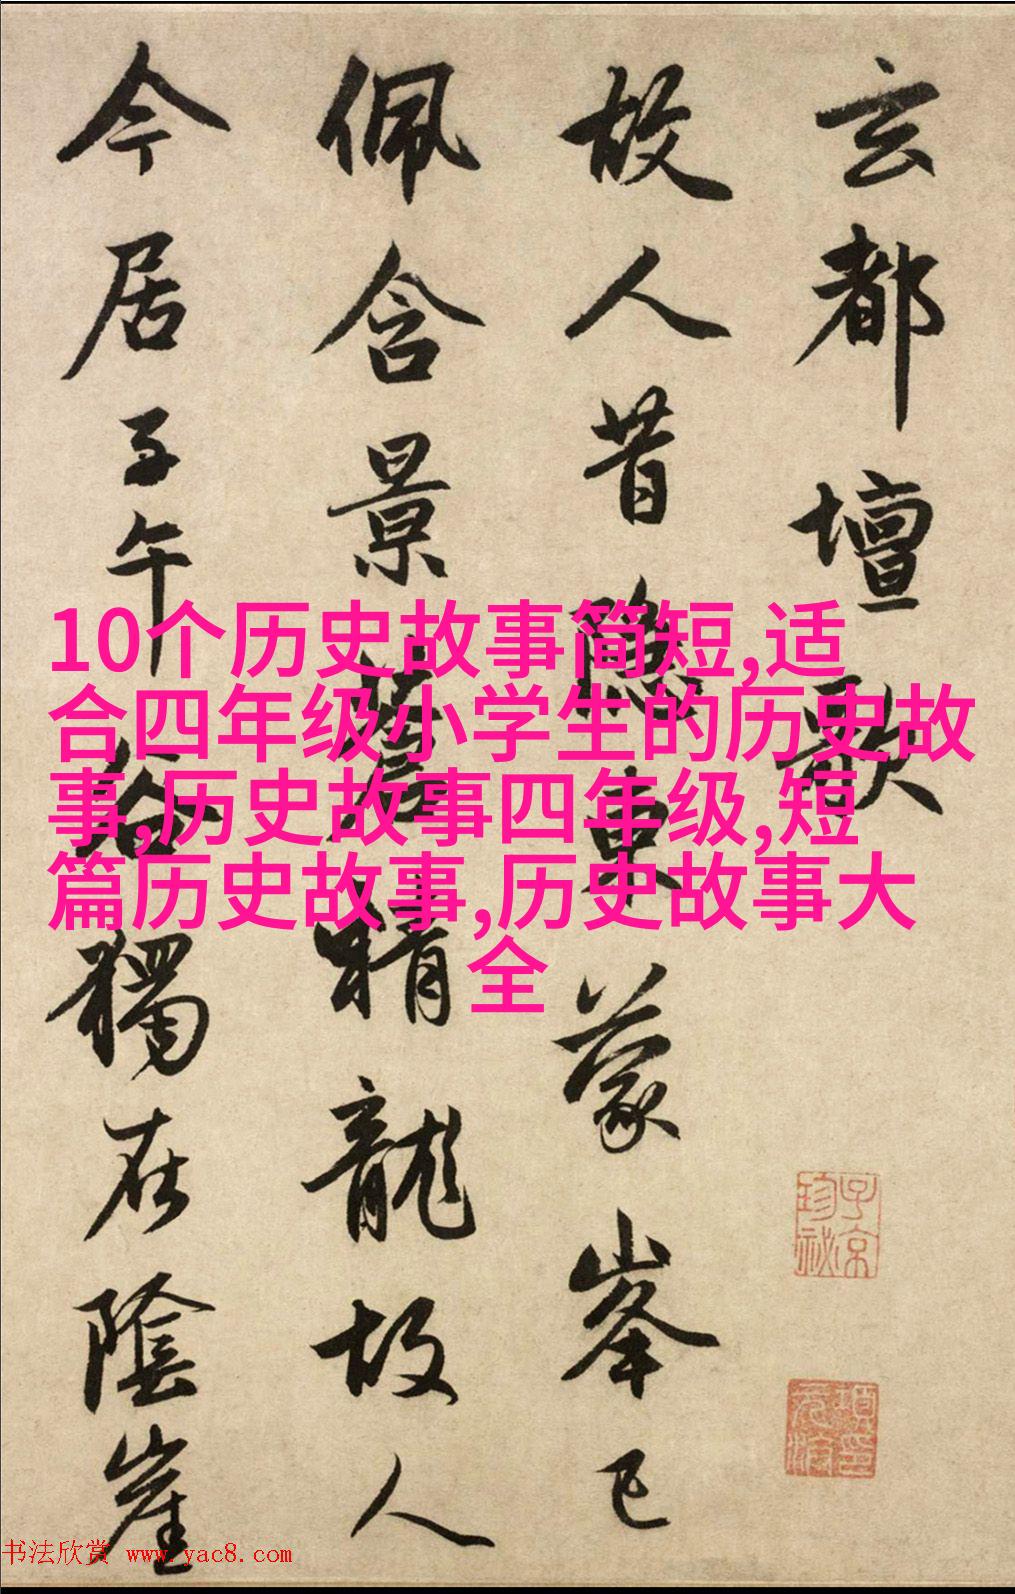 玄都壇歌
故人昔隱東蒙峯已
佩含景蒼精龍故人
今居子午谷獨在陰崖
10个历史故事简短,适
合四年级小学生的历史故
事,历史故事四年级,短
篇历史故事,历史故事大
全
子京
珍祕
项元汴印
书法欣赏 www.yac8.com